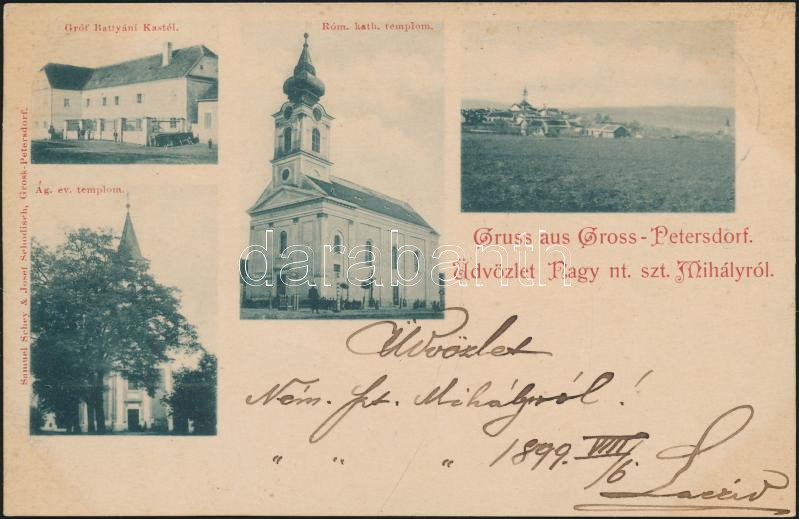 Gróf Battyáni Kastél.
Róm. kath. templom.
Ág. ev. templom.
Samuel Schey & Josef Schodisch, Grosk-Petersdorf.
Gruss aus Gross-Petersdorf.
Üdvözlet Nagy nt. szt. Mihályról.
darabanth
Üdvözlet
Ném. szt. Mihályról!
" " " 1899. VIII/6